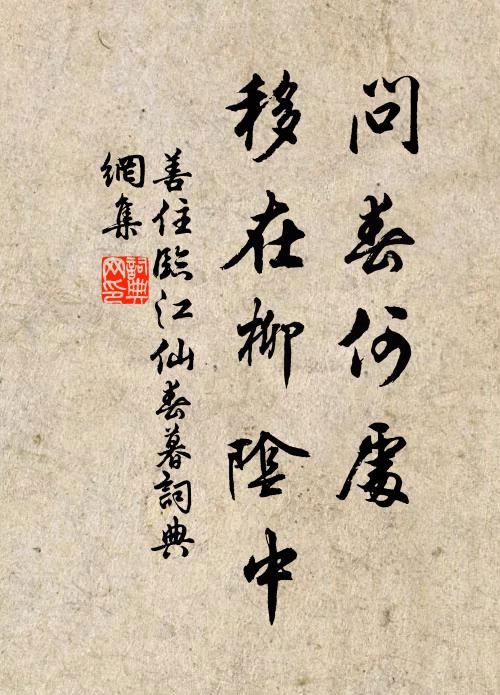 問春何處
移在柳陰中
善住臨江仙春暮詞典
網集
詞典
網印